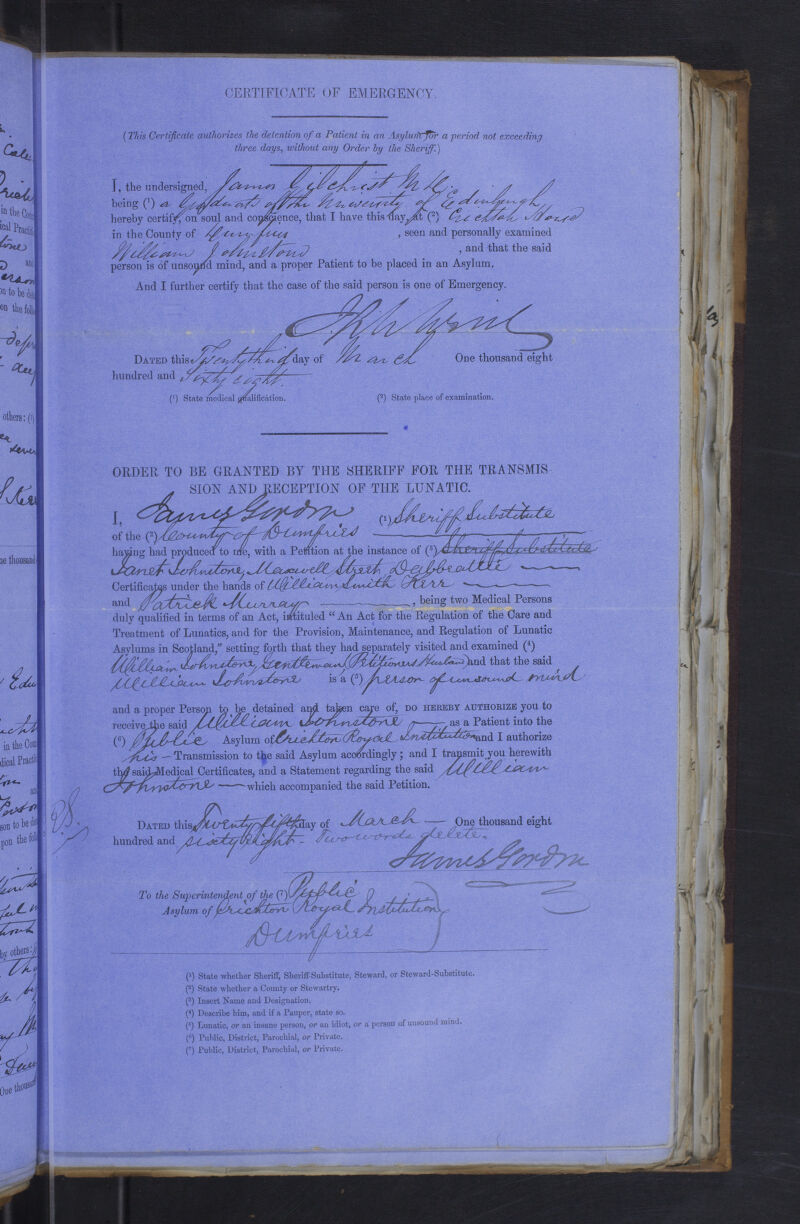 CERTIFICATE OF EMERGENCY.
(This Certificate authorizes the detention of a Patient in an Asylum for a period not exceeding
three days, without any Order by the Sheriff.)
I, the undersigned, James Gilchrist M.D.
being (¹) a Graduate of the University of Edinburgh
hereby certify, on soul and conscience, that I have this day, at (²) Crichton House
in the County of Dumfries, seen and personally examined
William Johnstone, and that the said
person is of unsound mind, and a proper Patient to be placed in an Asylum.
And I further certify that the case of the said person is one of Emergency.
DATED this Twenty third day of March One thousand eight
hundred and Sixty eight.
(¹) State medical qualification. (²) State place of examination.
ORDER TO BE GRANTED BY THE SHERIFF FOR THE TRANSMIS
SION AND RECEPTION OF THE LUNATIC.
I, James Gordon (¹) Sheriff Substitute
of the (²) County of Dumfries
having had produced to me, with a Petition at the instance of (³) Sheriff Substitute
Janet Johnstone, Maxwell Street Dalbeattie
Certificates under the hands of William Smith Kerr
and Patrick Murray, being two Medical Persons
duly qualified in terms of an Act, intituled "An Act for the Regulation of the Care and
Treatment of Lunatics, and for the Provision, Maintenance, and Regulation of Lunatic
Asylums in Scotland," setting forth that they had separately visited and examined (⁴)
William Johnstone, Gentleman (Petitioners Husband) and that the said
William Johnstone is a (⁵) person of unsound mind
and a proper Person to be detained and taken care of, DO HEREBY AUTHORIZE you to
receive the said William Johnstone as a Patient into the
(⁶) Public Asylum of Crichton Royal Institution and I authorize
his Transmission to the said Asylum accordingly; and I transmit you herewith
the said Medical Certificates, and a Statement regarding the said William
Johnstone which accompanied the said Petition.
DATED this Twenty fifth day of March One thousand eight
hundred and sixty eight - Two words delete.
James Gordon
To the Superintendent of the (⁷) Public
Asylum of Crichton Royal Institution
Dumfries
(¹) State whether Sheriff, Sheriff-Substitute, Steward, or Steward-Substitute.
(²) State whether a County or Stewartry.
(³) Insert Name and Designation.
(⁴) Describe him, and if a Pauper, state so.
(⁵) Lunatic, or an insane person, or an idiot, or a person of unsound mind.
(⁶) Public, District, Parochial, or Private.
(⁷) Public, District, Parochial, or Private.